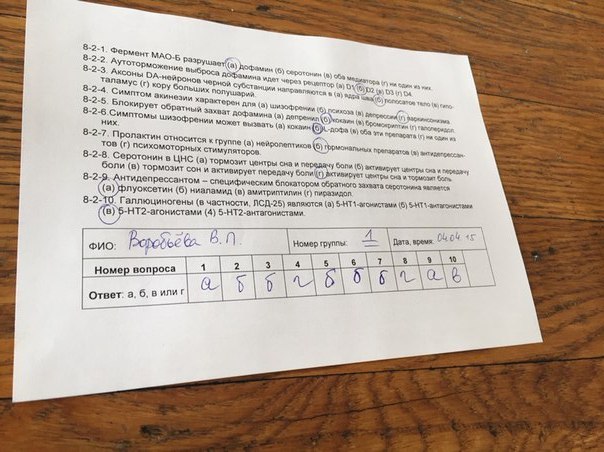 8-2-1. Фермент МАО-Б разрушает (а) дофамин (б) серотонин (в) оба медиатора (г) ни один из них.
8-2-2. Ауototорможение выброса дофамина идет через рецептор (а) D1 (б) D2 (в) D3 (г) D4.
8-2-3. Аксоны DA-нейронов черной субстанции направляются в (а) ядра шва (б) полосатое тело (в) гипо-
таламус (г) кору больших полушарий.
8-2-4. Симптом акинезии характерен для (а) шизофрении (б) психоза (в) депрессии (г) паркинсонизма.
8-2-5. Блокирует обратный захват дофамина (а) депренил (б) кокаин (в) бромокриптин (г) галоперидол.
8-2-6.Симптомы шизофрении может вызвать (а) кокаин (б) L-дофа (в) оба эти препарата (г) ни один из
них.
8-2-7. Пролактин относится к группе (а) нейролептиков (б) гормональных препаратов (в) антидепрессан-
тов (г) психомоторных стимуляторов.
8-2-8. Серотонин в ЦНС (а) тормозит центры сна и передачу боли (б) активирует центры сна и передачу
боли (в) тормозит сон и активирует передачу боли (г) активирует центры сна и тормозит боль
8-2-9. Антидепрессантом – специфическим блокатором обратного захвата серотонина является
(а) флуоксетин (б) ниаламид (в) амитриптилин (г) пиразидол.
8-2-10. Галлюциногены (в частности, ЛСД-25) являются (а) 5-НТ1-агонистами (б) 5-НТ1-антагонистами
(в) 5-НТ2-агонистами (4) 5-НТ2-антагонистами.
ФИО: Воробьёва В.П. Номер группы: 1 Дата, время: 04.04.15
Номер вопроса 1 2 3 4 5 6 7 8 9 10
Ответ: а, б, в или г а б б г б б б г а в